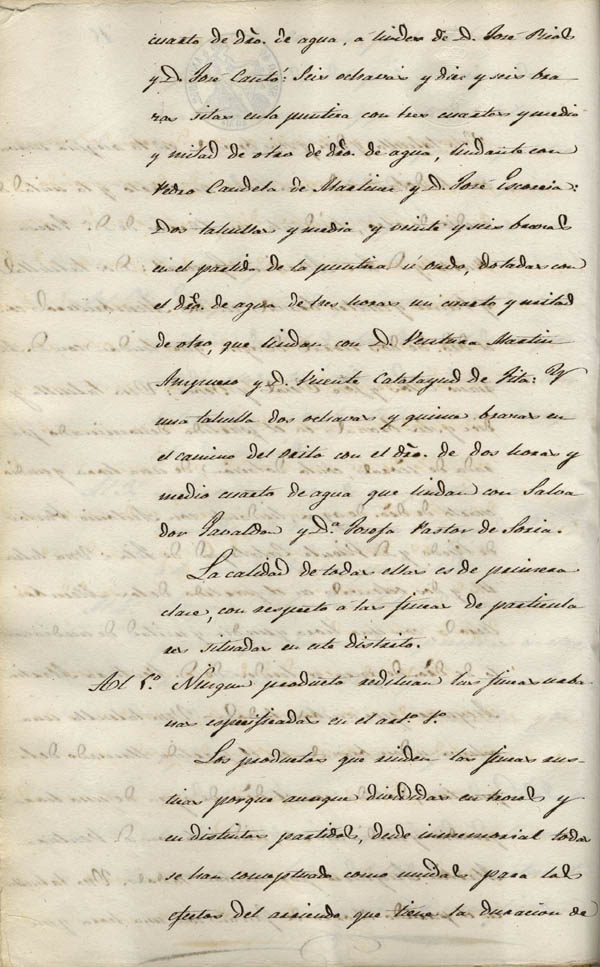 cuarto de dro. de agua, a lindes de D. José Rial
y D. José Cantó: Seis octavas y diez y seis bra
zas sitas en la puntera con tres cuartos y medio
y mitad de otro de dro. de agua, lindante con
Pedro Candela de Martinez y D. José Escorcia:
Dos tahullas y media y veinte y seis brazas
en el partido de la puntera ú ondo, dotadas con
el dro. de agua de tres horas un cuarto y mitad
de otro, que lindan con D. Ventura Martin
Ampuero y D. Vicente Calatayud de Pita: Y
una tahulla dos octavas y quince brazas en
el camino del con el dro. de dos horas y
medio cuarto de agua que lindan con Salva
dor Javaldon y D.ª Josefa Pastor de Soria.
La calidad de todas ellas es de primera
clase, con respecto a las fincas de particula
res situadas en este distrito.
Al 5.º Ningun producto reditúan las fincas urba
nas espesificadas en el art.º 1.º
Los productos que rinden las fincas rus-
ticas porque aunque divididas en trozos y
en distintos partidos, desde inmemorial todas
se han conceptuado como unidas para los
efectos del arriendo que tiene la duracion de